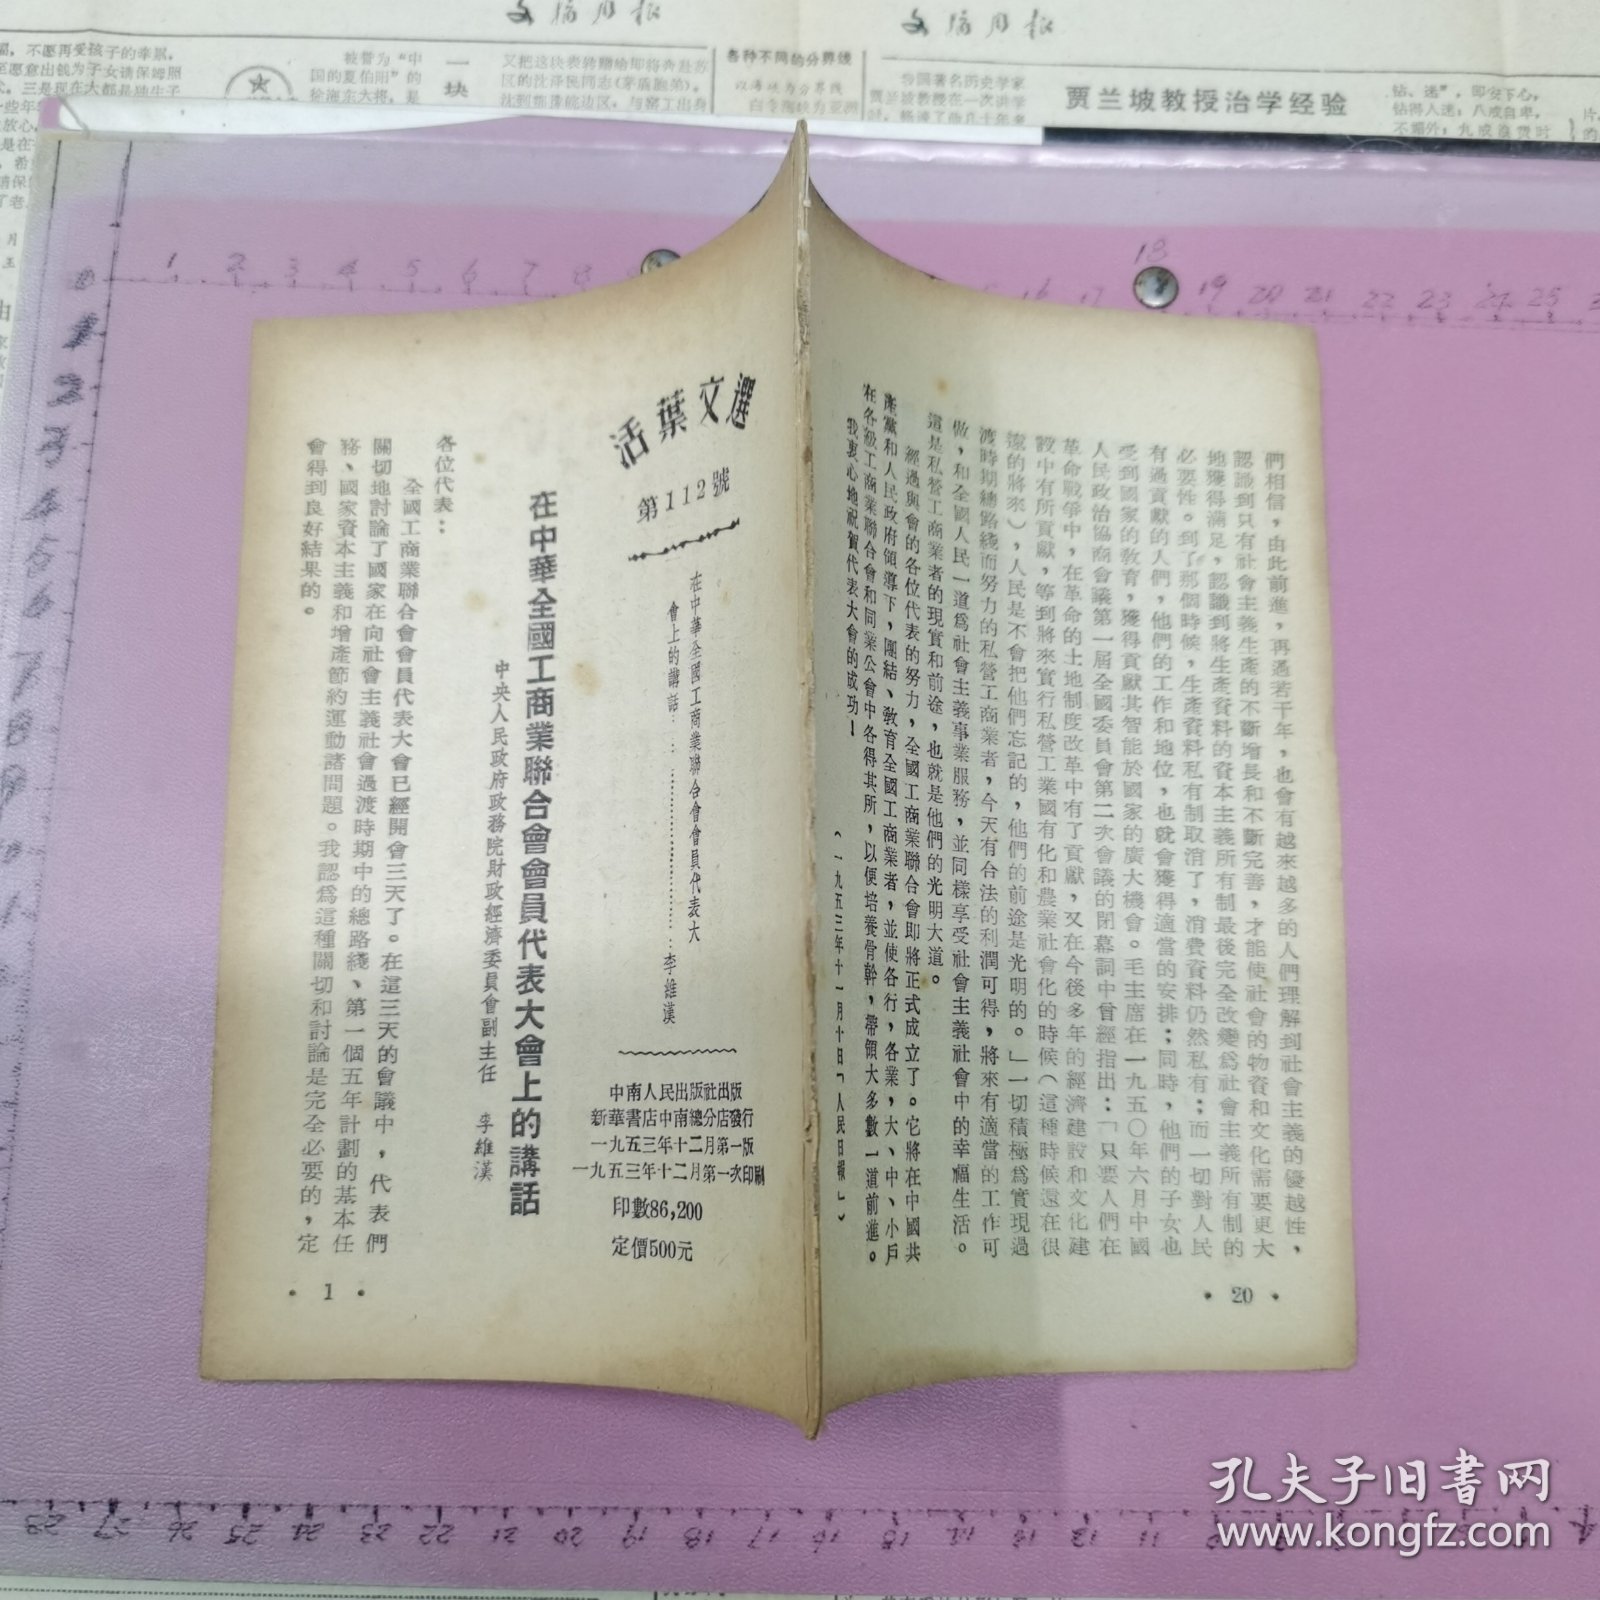 文摘周报
文摘周报
贾兰坡教授治学经验
各种不同的分界线
一块
活葉文選
第112號
在中華全國工商業聯合會會員代表大
會上的講話
李維漢
中南人民出版社出版
新華書店中南總分店發行
一九五三年十二月第一版
一九五三年十二月第一次印刷
印數86,200
定價500元
在中華全國工商業聯合會會員代表大會上的講話
中央人民政府政務院財政經濟委員會副主任 李維漢
各位代表：
全國工商業聯合會會員代表大會已經開會三天了。在這三天的會議中，代表們
關切地討論了國家在向社會主義社會過渡時期中的總路綫、第一個五年計劃的基本任
務、國家資本主義和增產節約運動諸問題。我認爲這種關切和討論是完全必要的，定
會得到良好結果的。
• 1 •
們相信，由此前進，再過若干年，也會有越來越多的人們理解到社會主義的優越性，
認識到只有社會主義生產的不斷增長和不斷完善，才能使社會的物資和文化需要更大
地獲得滿足，認識到將生產資料的資本主義所有制最後完全改變爲社會主義所有制的
必要性。到了那個時候，生產資料私有制取消了，消費資料仍然私有；而一切對人民
有過貢獻的人們，他們的工作和地位，也就會獲得適當的安排；同時，他們的子女也
受到國家的教育，獲得貢獻其智能於國家的廣大機會。毛主席在一九五〇年六月中國
人民政治協商會議第一屆全國委員會第二次會議的閉幕詞中曾經指出：「只要人們在
革命戰爭中，在革命的土地制度改革中有了貢獻，又在今後多年的經濟建設和文化建
設中有所貢獻，等到將來實行私營工業國有化和農業社會化的時候（這種時候還在很
遠的將來），人民是不會把他們忘記的，他們的前途是光明的。」一切積極爲實現過
渡時期總路綫而努力的私營工商業者，今天有合法的利潤可得，將來有適當的工作可
做，和全國人民一道爲社會主義事業服務，並同樣享受社會主義社會中的幸福生活。
這是私營工商業者的現實和前途，也就是他們的光明大道。
經過與會的各位代表的努力，全國工商業聯合會即將正式成立了。它將在中國共
產黨和人民政府領導下，團結、教育全國工商業者，並使各行，各業，大、中、小戶
在各級工商業聯合會和同業公會中各得其所，以便培養骨幹，帶領大多數一道前進。
我衷心地祝賀代表大會的成功！
（一九五三年十一月十日「人民日報」）
• 20 •
孔夫子旧书网
www.kongfz.com